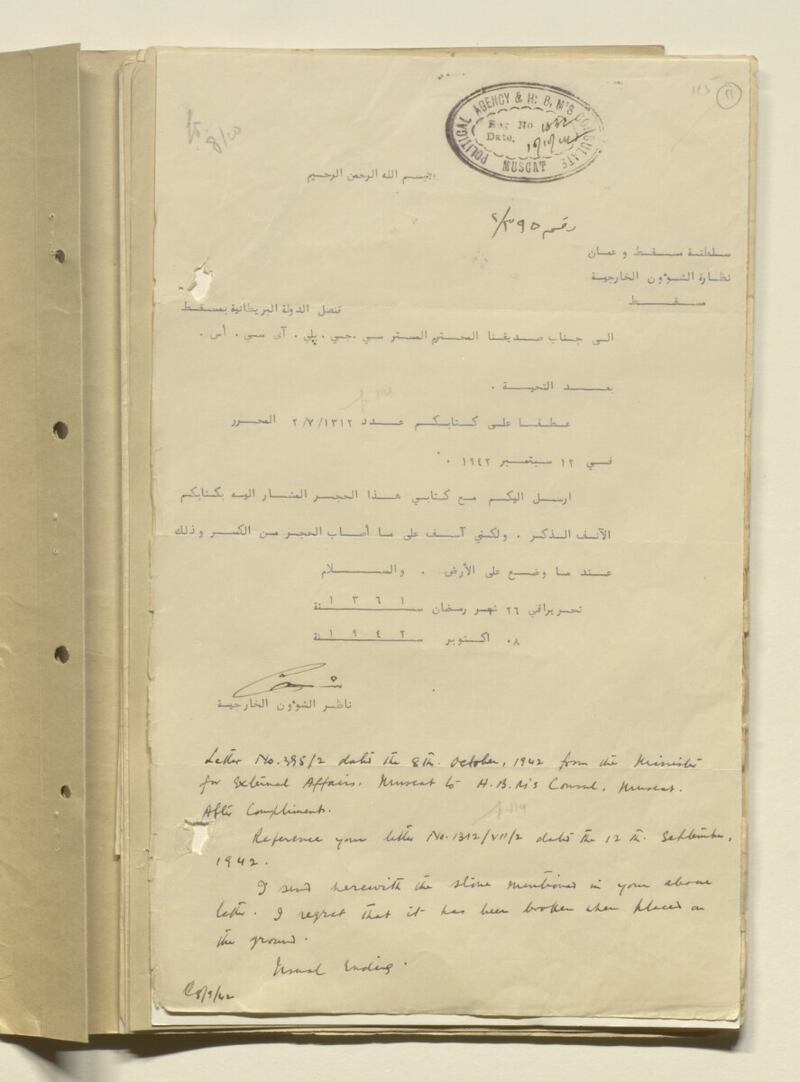 115 ١١
POLITICAL AGENCY & H. B. M'S CONSULATE
Reg No
Date.
MUSCAT
8/20
بسم الله الرحمن الرحيم
رقم ٢/٣٩٥
سلطنة مسقط و عمان
نظارة الشؤون الخارجية
مسقط
قنصل الدولة البريطانية بمسقط
الى جناب صديقنا المحترم المستر سي . جي . پلي . آى سي . أس .
بعد التحية .
عطفا على كتابكم عدد ٢/٧/١٣١٢ المحرر
في ١٢ سبتمبر ١٩٤٢ .
ارسل اليكم مع كتابي هذا الحجر المشار اليه بكتابكم
الآنف الذكر . ولكني آسف على ما أصاب الحجر من الكسر وذلك
عند ما وضع على الأرض . والسلام
تحريرافي ٢٦ شهر رمضان سنة ١٣٦١
٠٨ اكتوبر سنة ١٩٤٢
ناظر الشؤون الخارجية
Letter No. 395/2 dated the 8th. October, 1942 from the Minister
for External Affairs, Muscat to H. B. M's Consul, Muscat.
After Compliments.
Reference your letter No. 1312/VII/2 dated the 12 th. September,
1942.
I send herewith the stone mentioned in your above
letter. I regret that it has been broken when placed on
the ground.
Usual Ending.
8/9/42